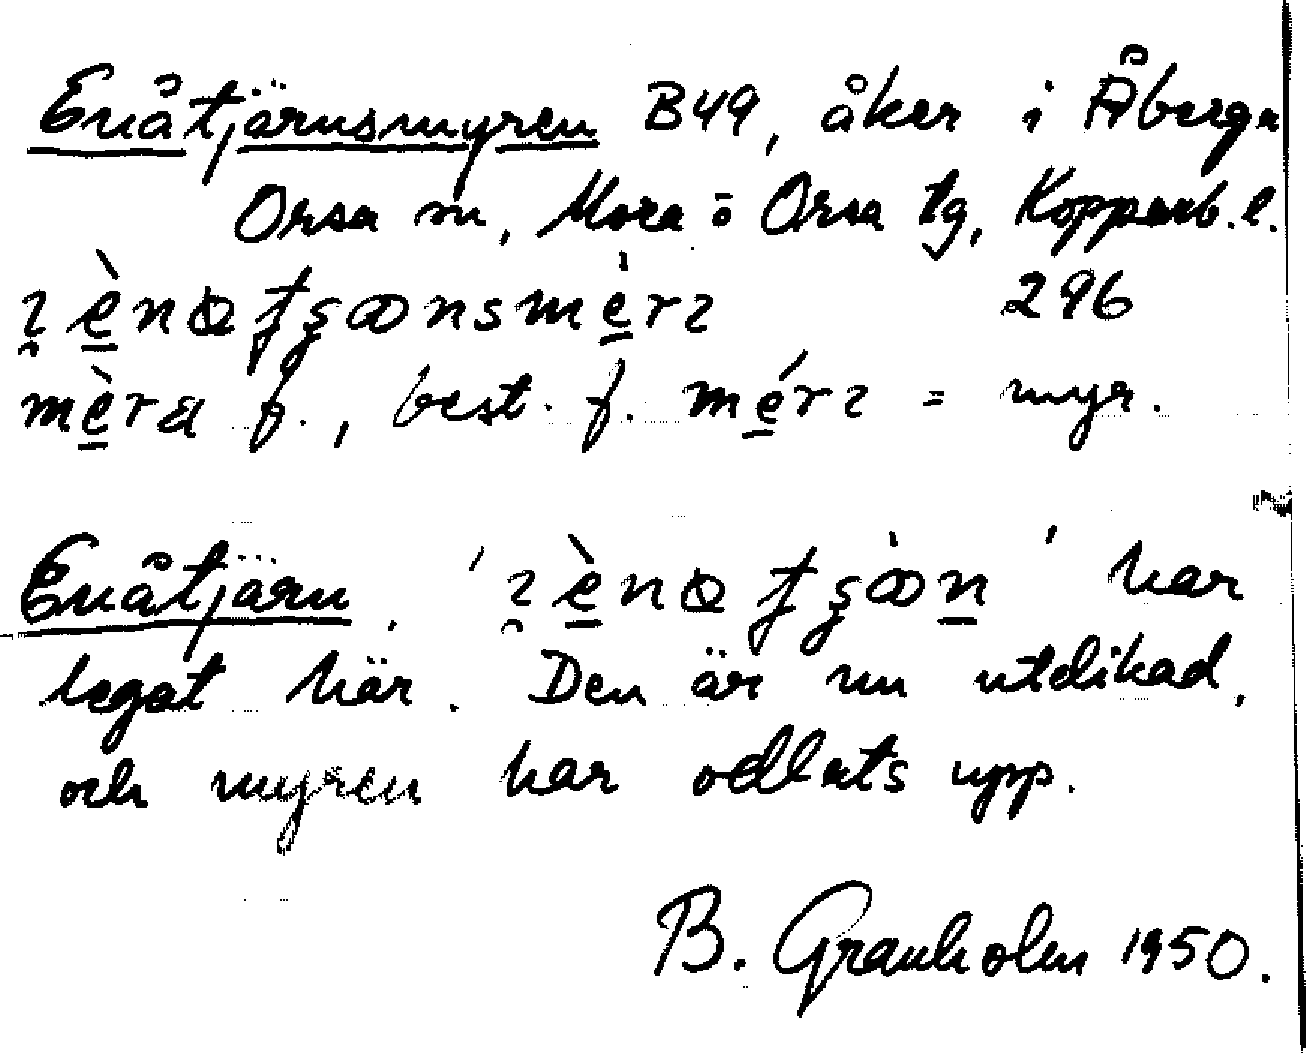 Enåtjärnsmyren B49, åker i Åberga
Orsa sn, Mora o Orsa tg, Kopparb. l.
296
best. f. = myr.
Enåtjärn. har
legat här. Den är nu utdikad,
och myren har odlats upp.
B. Granholm 1950.